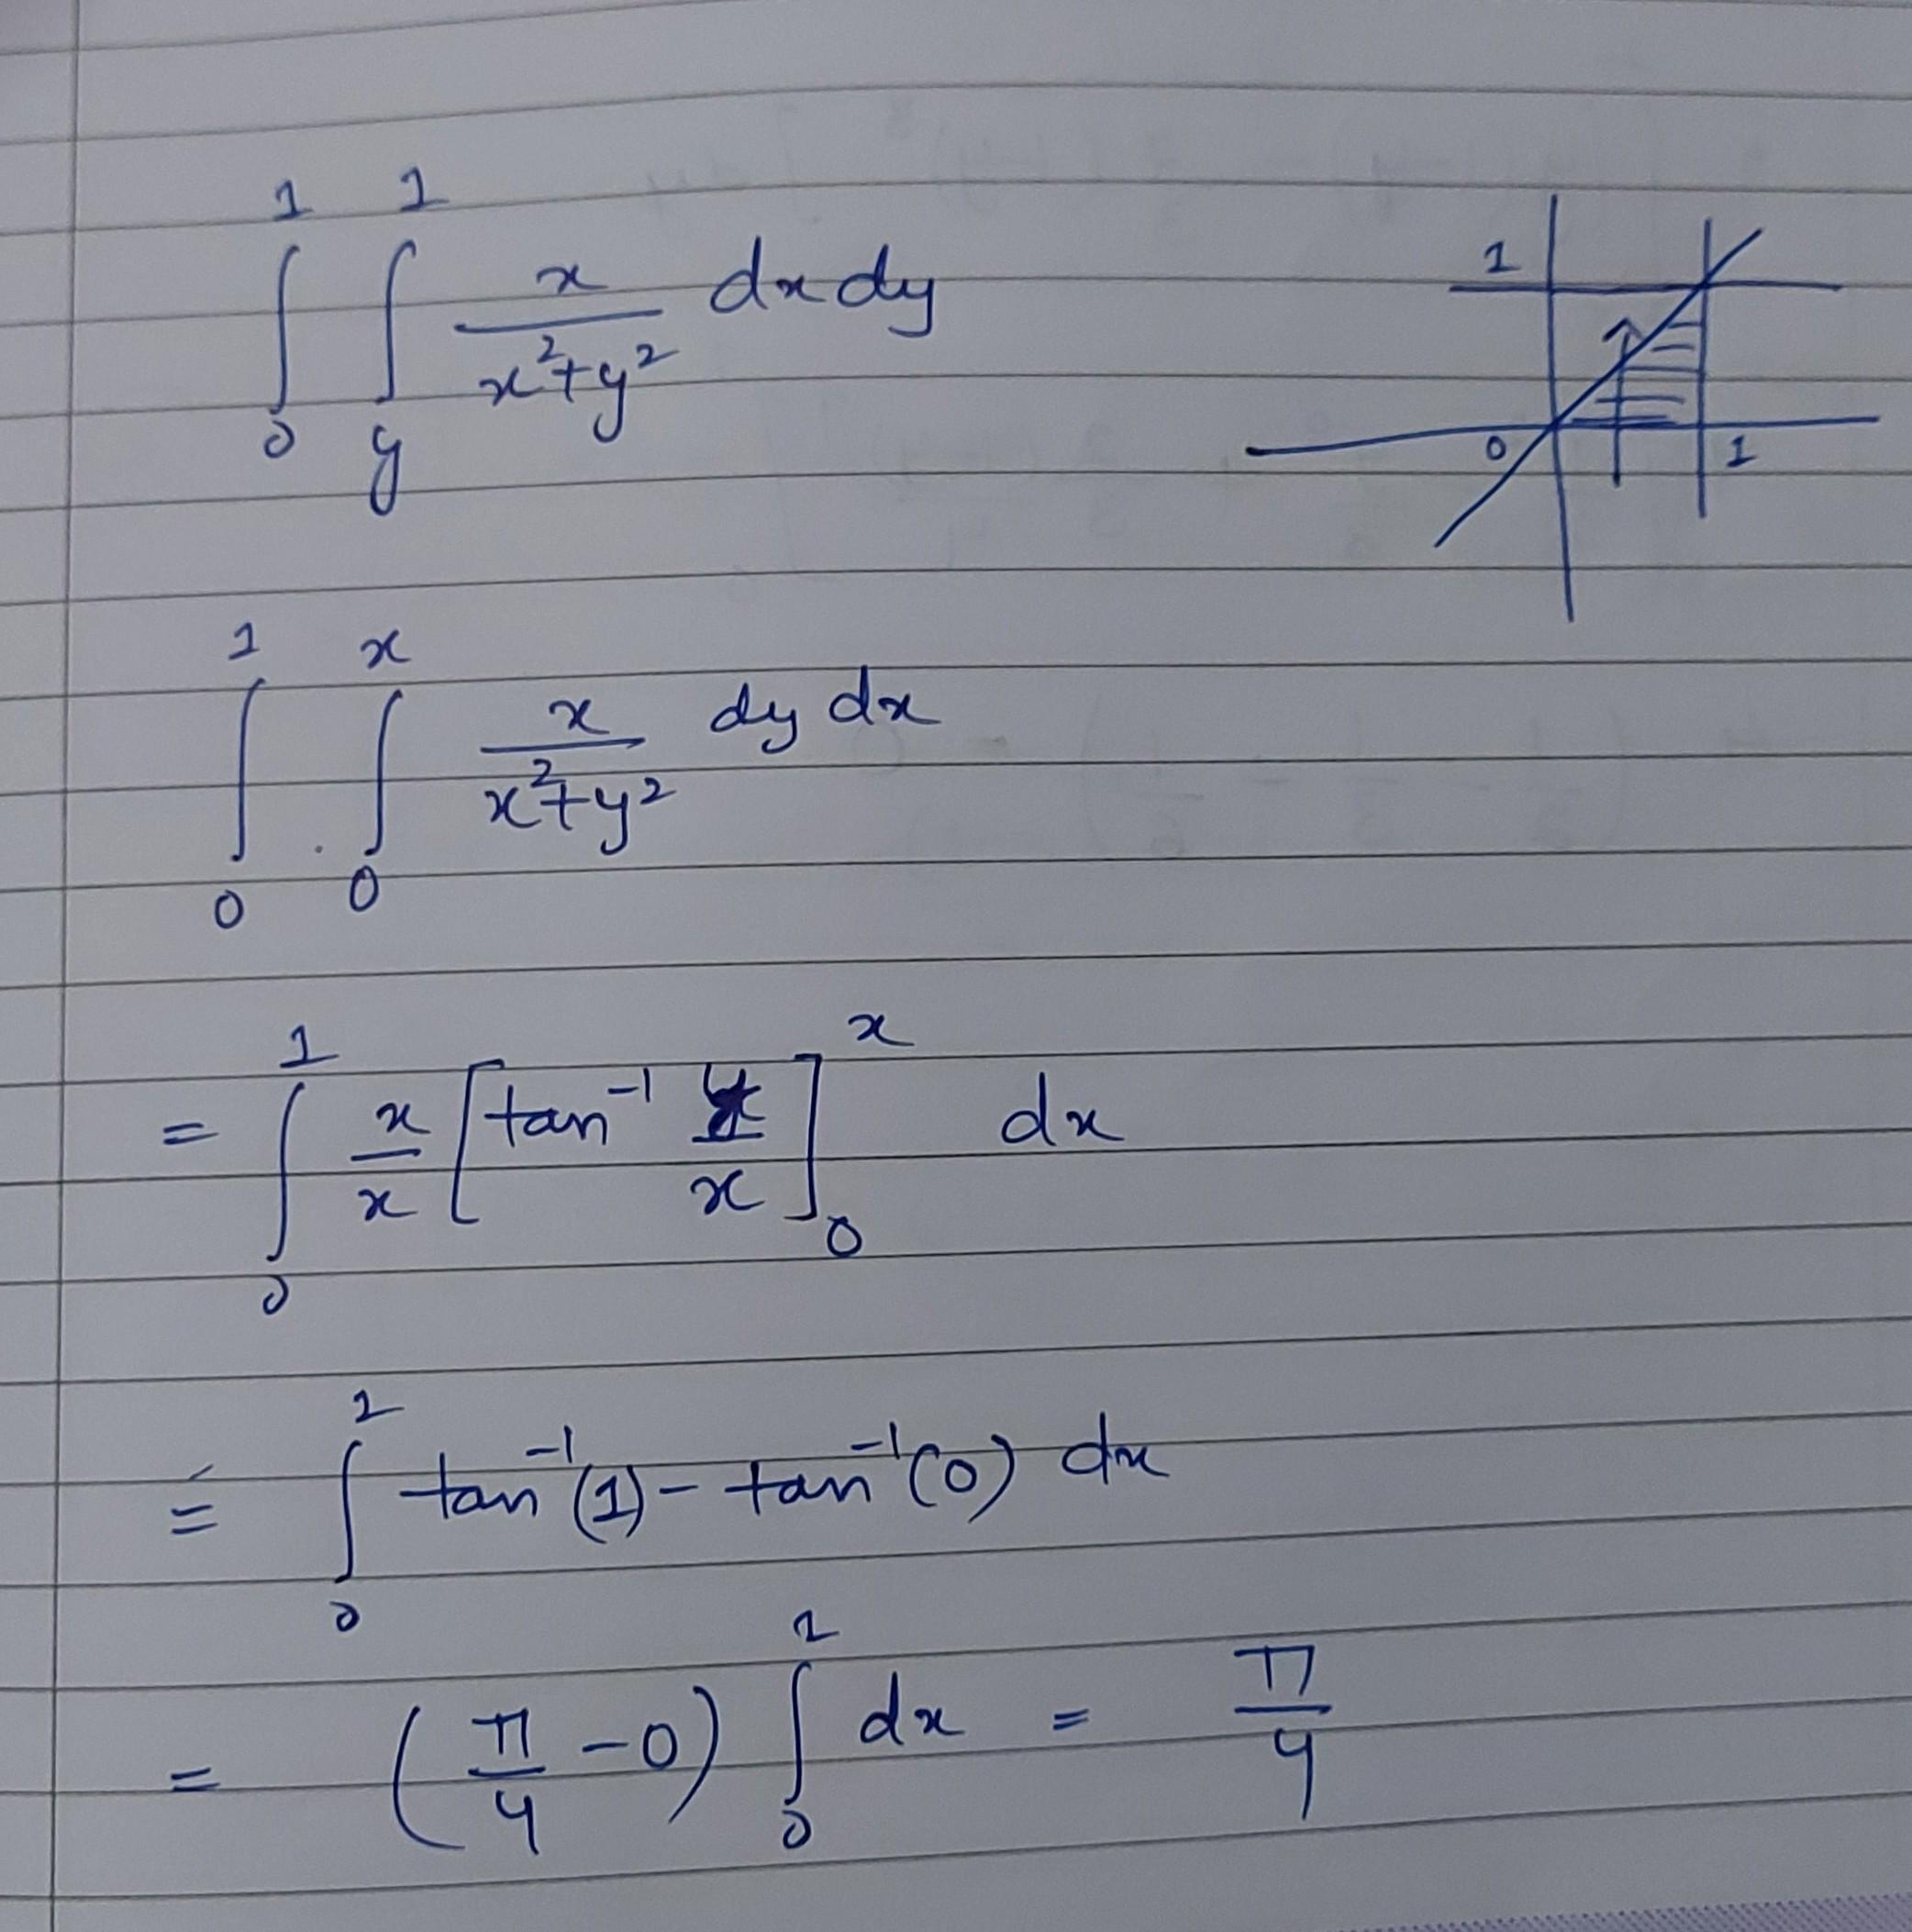 ∫₀¹ ∫_y¹ x/(x²+y²) dx dy
1
0 1
∫₀¹ ∫₀ˣ x/(x²+y²) dy dx
= ∫₀¹ x/x [tan⁻¹ y/x]₀ˣ dx
= ∫₀¹ tan⁻¹(1) - tan⁻¹(0) dx
= (π/4 - 0) ∫₀¹ dx = π/4